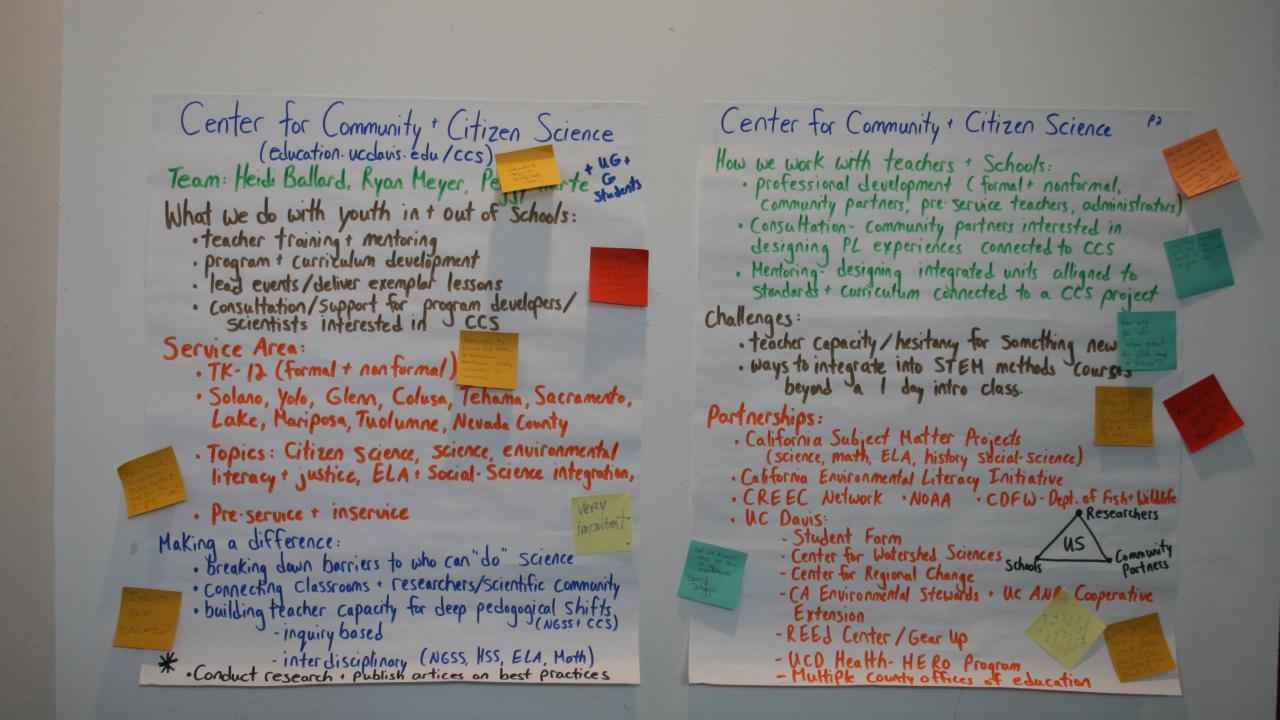 Center for Community + Citizen Science
(education.ucdavis.edu/CCS)
Team: Heidi Ballard, Ryan Meyer,
+ UG +
G
Students
What we do with youth in + out of Schools:
• teacher training + mentoring
• program + curriculum development
• lead events/deliver exemplar lessons
• consultation/support for program developers/
scientists interested in CCS
Service Area:
• TK-12 (formal + nonformal)
• Solano, Yolo, Glenn, Colusa, Tehama, Sacramento,
Lake, Mariposa, Tuolumne, Nevada County
• Topics: Citizen science, science, environmental
literacy + justice, ELA + Social-Science integration,
• Pre-service + inservice
very
important
Making a difference:
• breaking down barriers to who can "do" science
• connecting classrooms + researchers/scientific community
• building teacher capacity for deep pedogogical shifts,
(NGSS + CCS)
- inquiry based
- interdisciplinary (NGSS, HSS, ELA, Math)
* • Conduct research + publish artices on best practices
Center for Community + Citizen Science P2
How we work with teachers + Schools:
• professional development (formal + nonformal,
community partners, pre-service teachers, administrators)
• Consultation - community partners interested in
designing PL experiences connected to CCS
• Mentoring - designing integrated units alligned to
Standards + curriculum connected to a CCS project
Challenges:
• teacher capacity/hesitancy for something new
• ways to integrate into STEM methods courses
beyond a 1 day intro class.
Partnerships:
• California Subject Matter Projects
(science, math, ELA, history social-science)
• California Environmental Literacy Initiative
• CREEC Network • NOAA • CDFW - Dept. of Fish + Wildlife
• UC Davis:
- Student Farm
- Center for Watershed Sciences
- Center for Regional Change
- CA Environmental Stewards + UC ANR Cooperative
Extension
- REEd Center / Gear Up
- UCD Health - HERO Program
- Multiple county offices of education
Researchers
US
Schools
Community
Partners